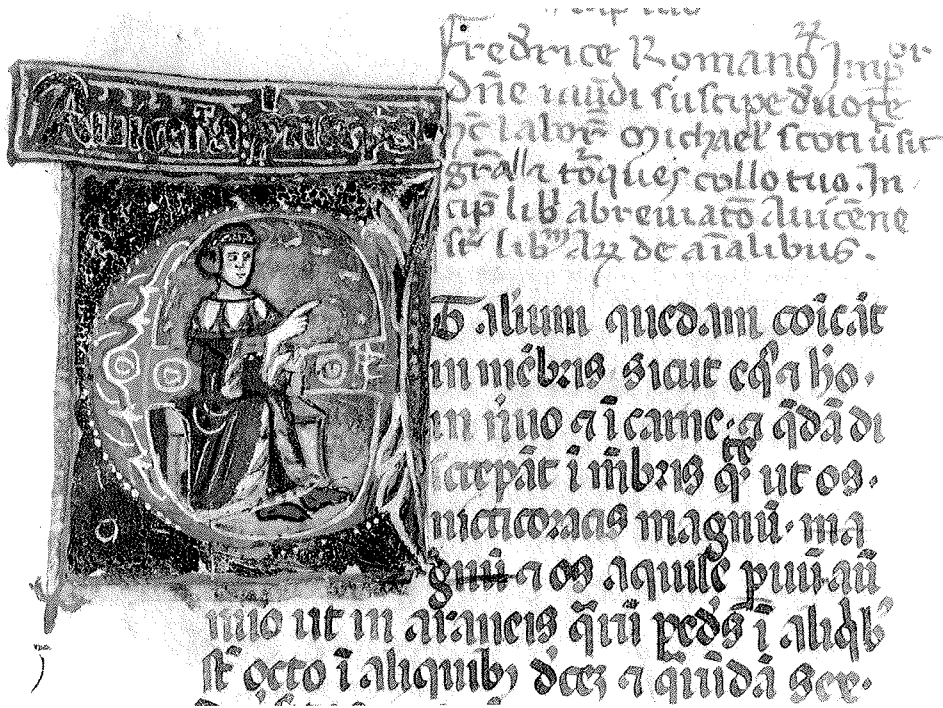 fredrice Romanoꝝ Imp̄or
dn̄e mūdi suscipe deuote
hc̄ laboꝝ Michael' scoti ut sit
torques collo tuo. In
cip̄ lib' abreuiatō Auicēne
sr̄ lib̄ Aꝝ de aīalibus.
talium quedam cōicāt
in mēbris sicut eqs ⁊ ho.
in niruo ⁊ ī carne. ⁊ qdā di
screpāt ī mbris qr ut os.
nicticoracis magnū. ma
gnū ⁊ os aquile puū. aū
nūo ut in araneis qm̄ pedes ī aliqb'
st̄ octo ī aliquibꝫ deceꝫ ⁊ quidā sex.